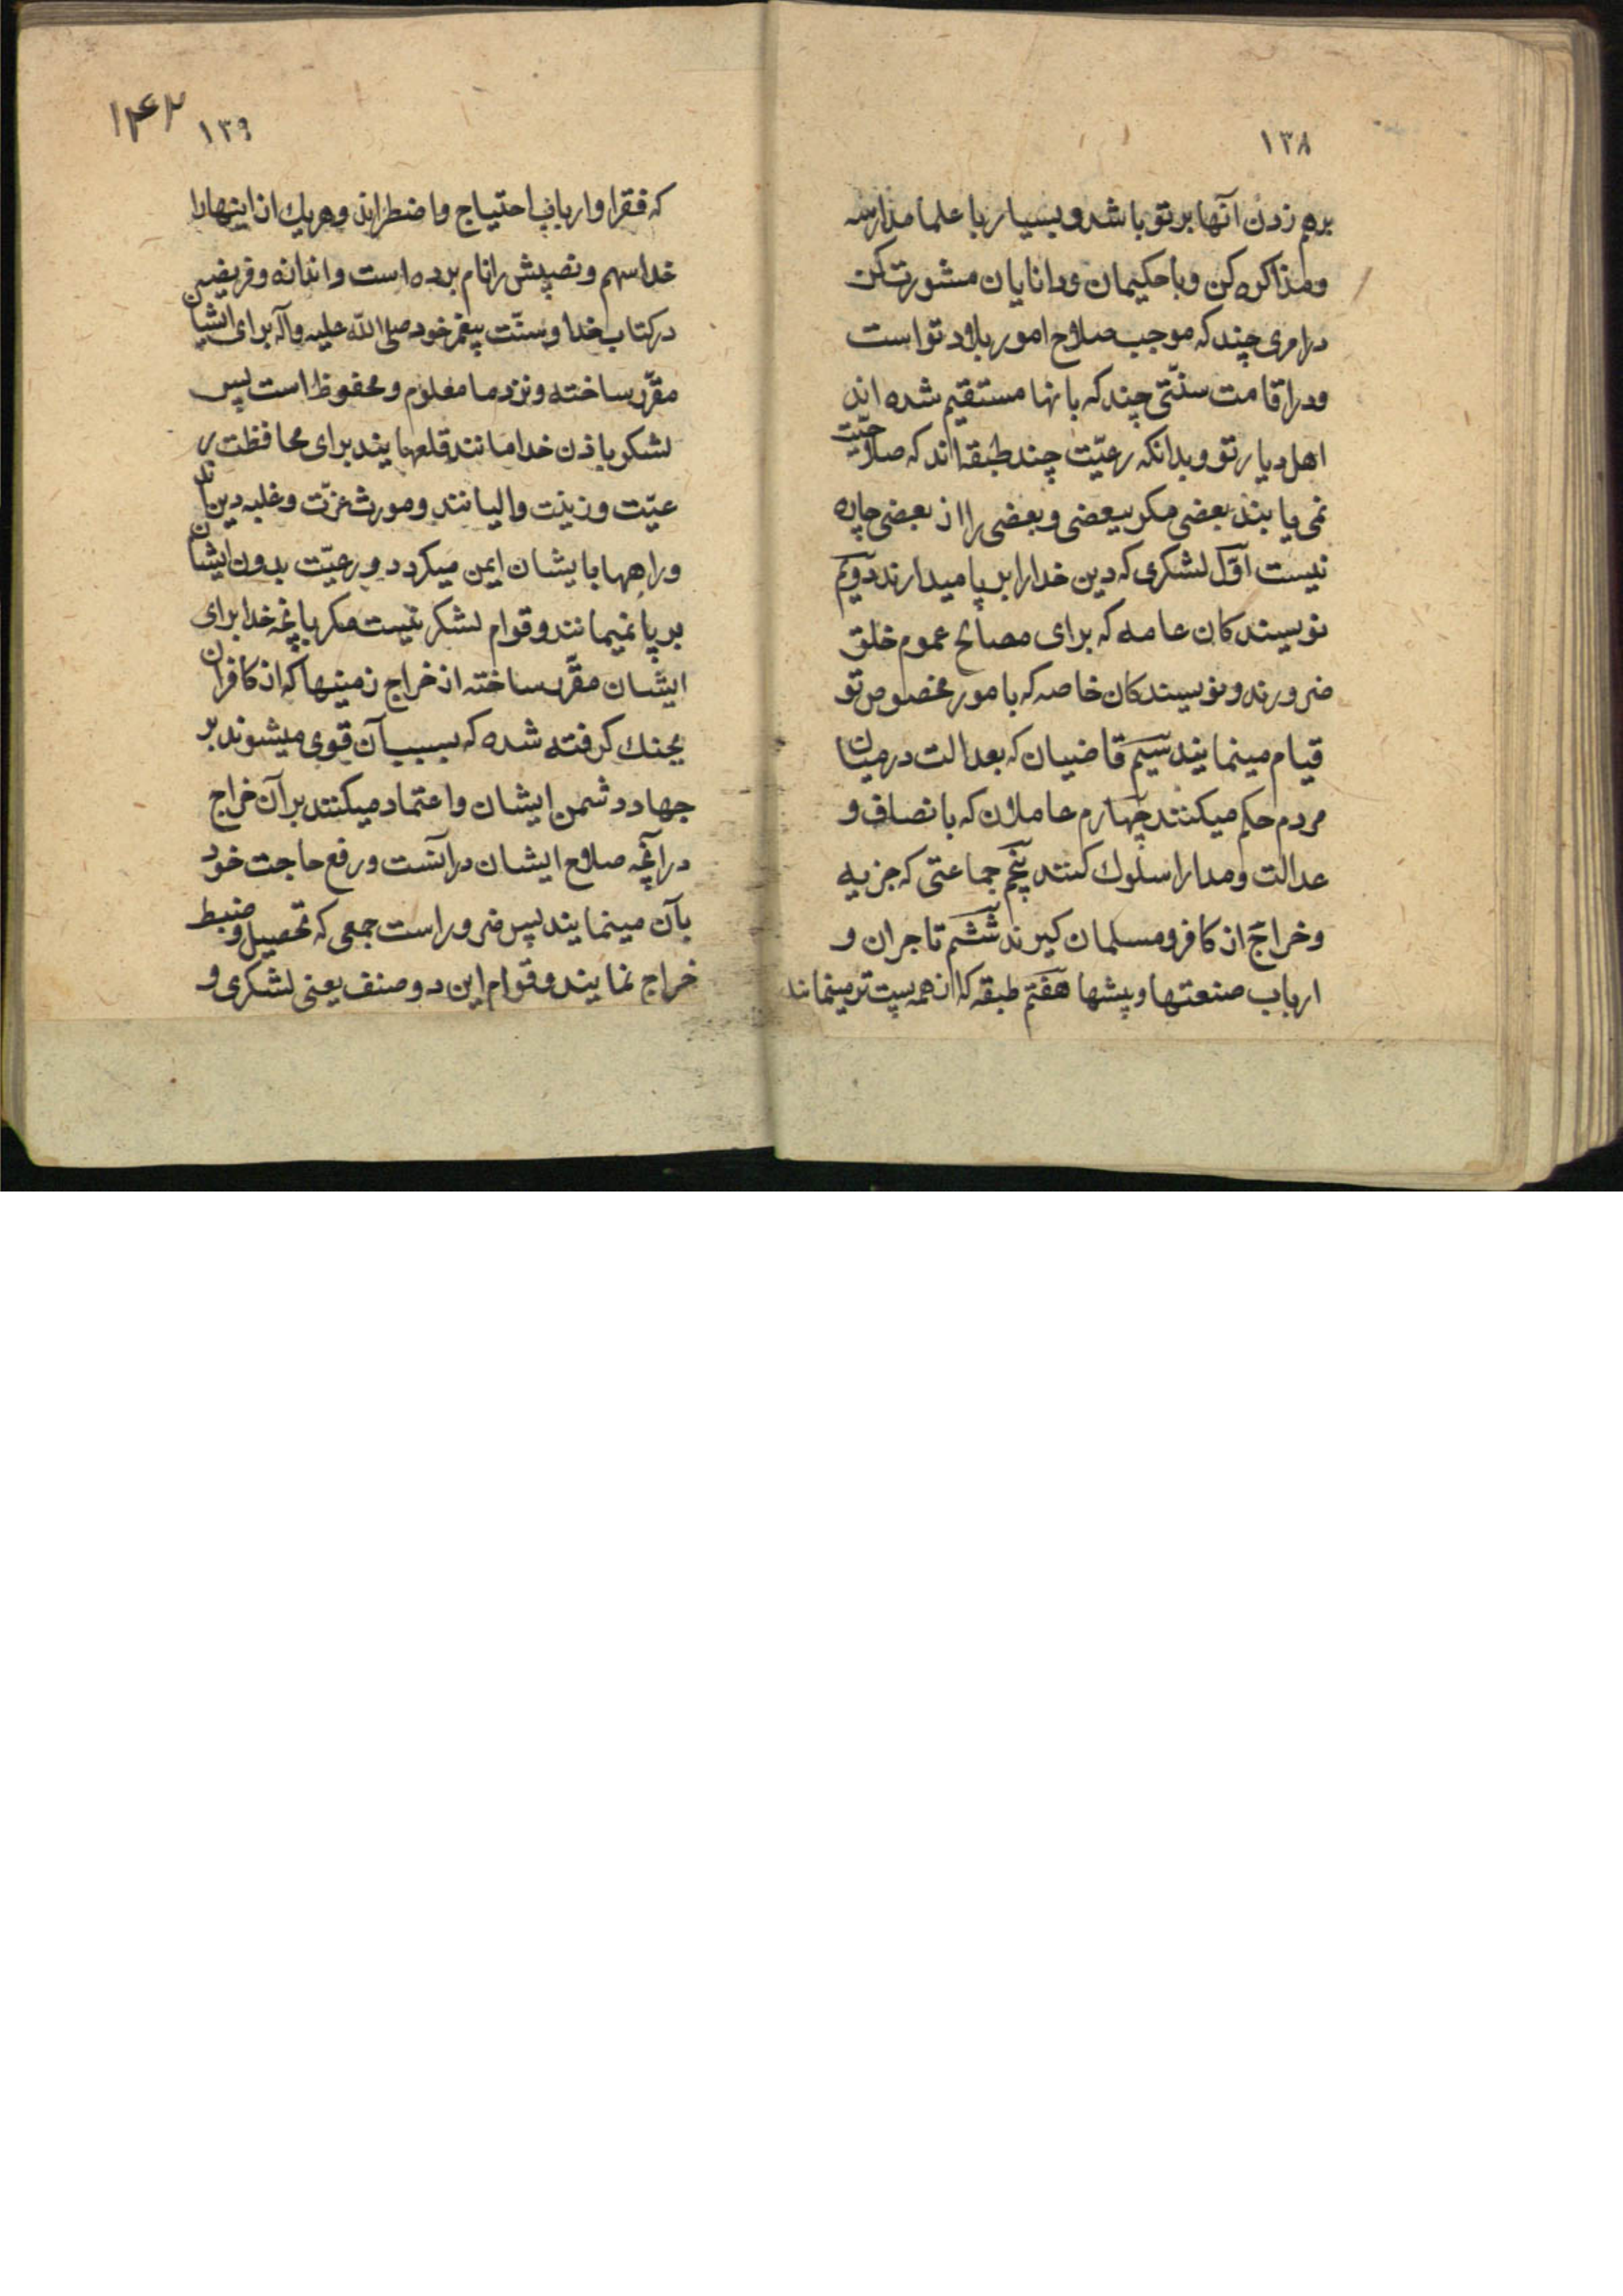 ۱۳۸
برهم زدن آنها بر تو باشد و بسیار با علما مدارسه
و مذاکره کن و با حکیمان و دانایان مشورت کن
در امری چند که موجب صلاح امور بلاد تو است
و در اقامت سنّتی چند که بانها مستقیم شده اند
اهل دیار تو و بدانکه رعیّت چند طبقه اند که صلاحیّت
نمی یابند بعضی مکر ببعضی و بعضی را از بعضی چاره
نیست اوّل لشکری که دین خدا را بر پا میدارند دویّم
نویسندکان عامه که برای مصالح عموم خلق
ضرورند و نویسندکان خاصه که بامور مخصوص تو
قیام مینمایند سیّم قاضییان که بعدالت در میان
مردم حکم میکنند چهارم عاملان که بانصاف و
عدالت و مدارا سلوک کنند پنجم جماعتی که جزیه
و خراج از کافر و مسلمان کیرند ششم تاجران و
ارباب صنعتها و پیشها هفتم طبقه که از همه پست تر مینمایند
۱۴۲
۱۳۹
که فقرا و ارباب احتیاج و اضطراند و هریک از اینها را
خدا سهم و نصیبش را نام برده است و اندازه و فریضهٔ
در کتاب خدا و سنّت پیغمبر خود صلی الله علیه و آله برای ایشان
مقرّر ساخته و نزد ما معلوم و محفوظ است پس
لشکر باذن خدا مانند قلعهایند برای محافظت ر
عیّت و زینت والیانند و مورث عزّت و غلبه دین اند
و راهها بایشان ایمن میکردد و رعیّت بدون ایشان
بر پا نمیمانند و قوام لشکر نیست مکر بآنچه خدا برای
ایشان مقرّر ساخته از خراج زمینها که از کافران
بجنک کرفته شده که بسبب آن قوی میشوند بر
جهاد دشمن ایشان و اعتماد میکنند بر آن خراج
در آنچه صلاح ایشان در آنست و رفع حاجت خود
بآن مینمایند پس ضرور است جمعی که تحصیل و ضبط
خراج نمایند و قوام این دو صنف یعنی لشکری و